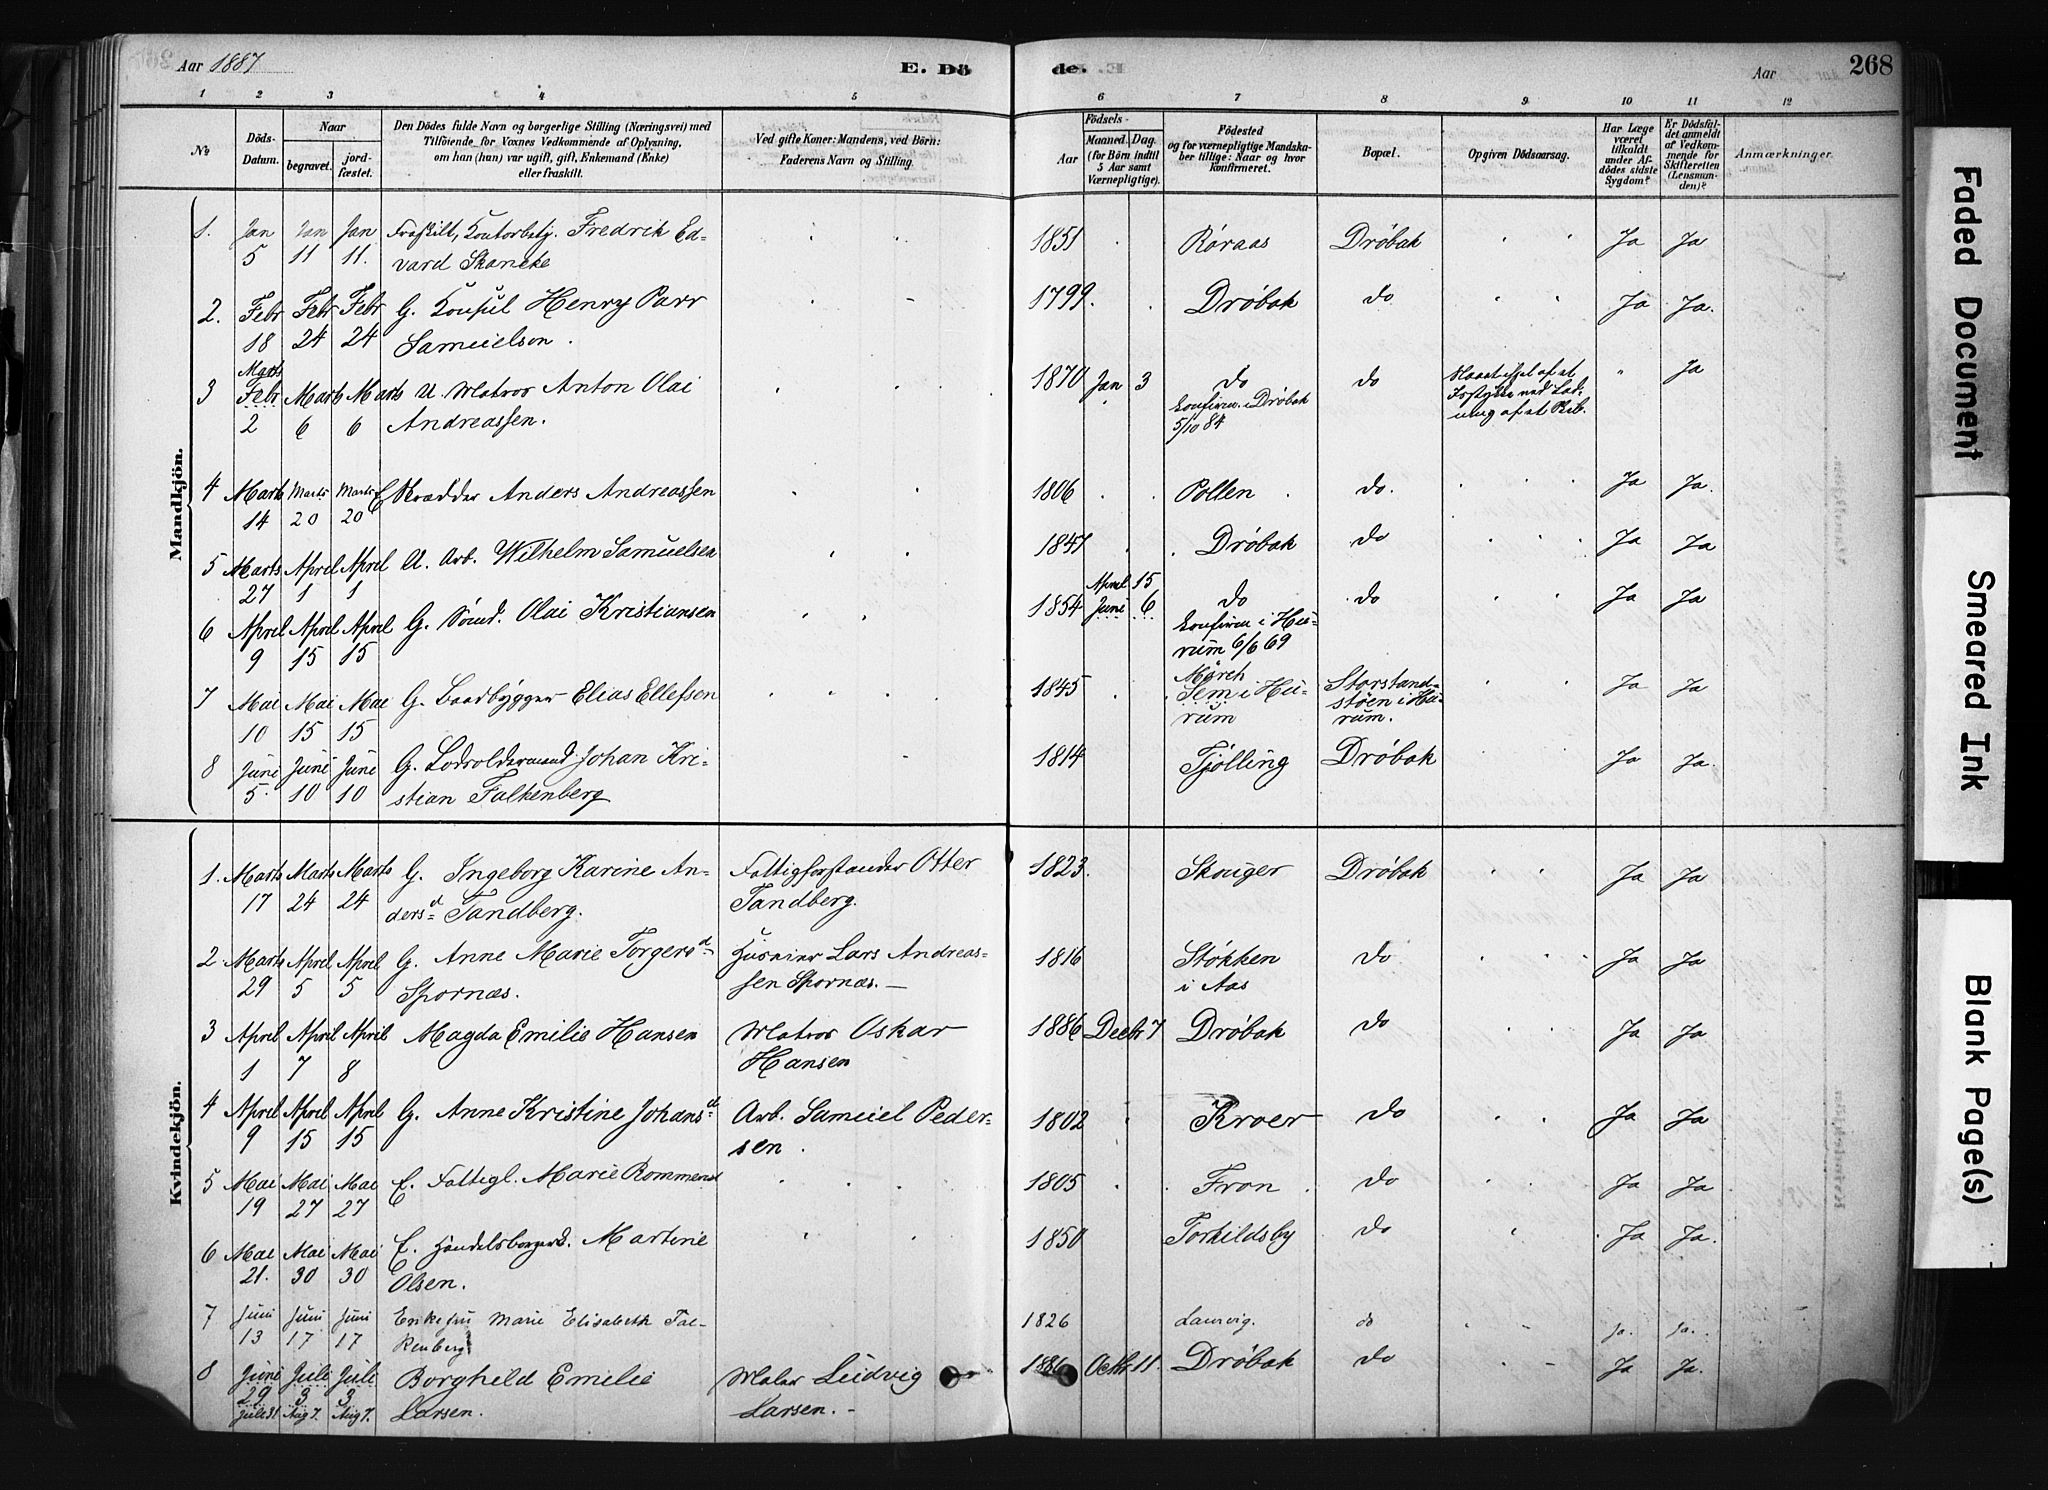 Aar 1887
E. Dö
de.
Aar
268
1 2 3 4 5 6 7 8 9 10 11 12
No
Döds-Datum.
Naar
begravet.
jord-fæstet.
Den Dödes fulde Navn og borgerlige Stilling (Næringsvei) med
Tilföiende for Voxnes Vedkommende af Oplysning,
om han (hun) var ugift, gift, Enkemand (Enke)
eller fraskilt.
Ved gifte Koner: Mandens, ved Börn:
Faderens Navn og Stilling.
Födsels-
Aar
Maaned.
Dag.
(for Börn indtil
5 Aar samt
Værnepligtige).
Födested
og for værnepligtige Mandska-
ber tillige: Naar og hvor
konfirmeret.
Bopæl.
Opgiven Dödsaarsag.
Har Læge
været
tilkaldt
under Af-
dödes sidste
Sygdom?
Er Dödsfal-
det anmeldt
af Vedkom-
mende for
Skifteretten
(Lensman-
den)?
Anmærkninger.
Mandkjön.
1. Jan Jan Jan Fraskilt, Kontorbetj. Fredrik Ed- 1851 Røraas Drøbak Ja Ja
5 11 11. vard Skancke
2. Febr Febr Febr G. Konsul Henry Parr 1799. Drøbak do Ja Ja.
18 24 24 Samuelson.
Marts
3 Febr Marts Marts U. Matros Anton Olai 1870 Jan 3 do do Ja
2 6 6 Andreassen. konfirm. i Drøbak
5/10 84
4 Marts Marts Marts E Skrædder Anders Andreassen 1806 Pollen do. Ja Ja.
14 20 20
5 Marts April April U. Arb. Wilhelm Samuelsen 1847 Drøbak do Ja Ja
27 1 1
April 15
6 April April April G. Sömd. Olai Kristiansen 1854 Juni 6 do do Ja Ja
9 15 15 konfirm i Hu-
rum 6/6 69
Mörch
7 Mai Mai Mai G. Baadbygger Elias Ellefsen 1845 Sem i Hu- Storsand- Ja Ja
10 15 15 rum støen i Hu-
rum.
8 Juni Juni Juni G. Lodsoldermand Johan Kri- 1814 Tjølling Drøbak Ja Ja.
5. 10 10 stian Falkenberg
Kvindekjön.
1. Marts Marts Marts G. Ingeborg Karine An- Fattigforstander Otter 1823. Skouger Drøbak Ja Ja
17 24 24 dersd Tandberg. Tandberg.
2. Marts April April G. Anne Marie Torgersd Lars Andreas- 1816 Støkken do Ja Ja
29 5 5 Spornæs. sen Spornæs. i Aas
3 April April April Magda Emilie Hansen Matros Oskar 1886 Decbr 7 Drøbak do Ja Ja
1 7 8 Hansen
4 April April April G. Anne Kristine Johansd Arb. Samuel Peder- 1802 Kroer do Ja Ja
9 15 15 sen.
5 Mai Mai Mai E. Fattigl. Marie Rommena 1805 Fron do Ja Ja
19 27 27
6 Mai Mai Mai E. Handelsborgersk. Martine 1850 Torkildsby do Ja Ja.
21. 30 30 Olsen.
7 Juni Juni Juni Enkefru Marie Elisabeth Fal- 1826 Laurvig. do Ja. Ja.
13 17 17 kenberg
8 Juni Juli Juli Borghild Emilie Maler Ludvig 1886 Octbr 11. Drøbak do Ja Ja.
29 3 3 Larsen. Larsen.
Juli 31 Aug 7. Aug 7.
Faded Document
Smeared Ink
Blank Page(s)